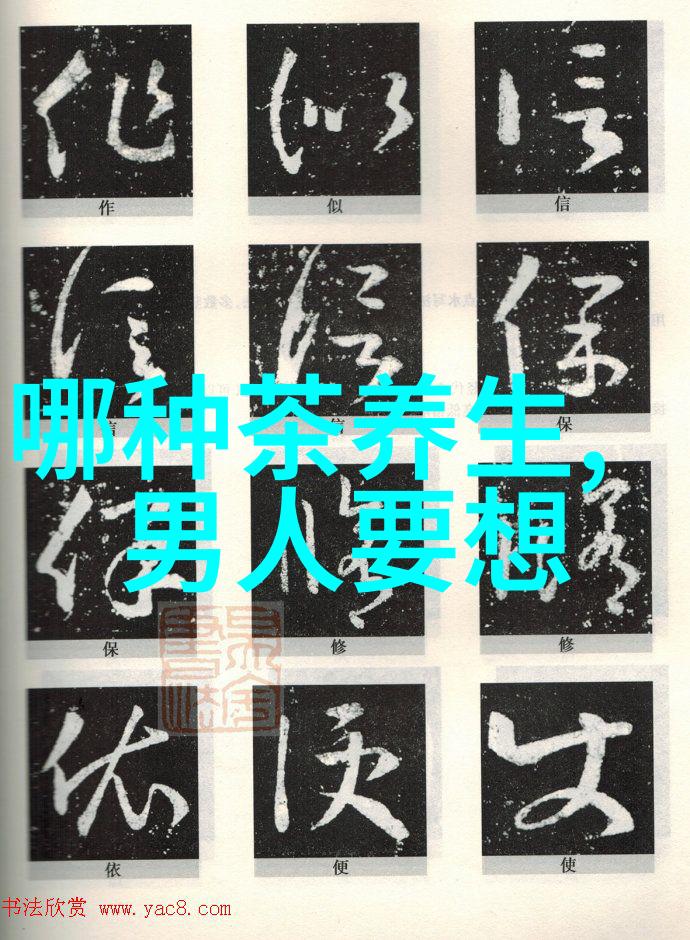 作 似 信
信 信 保
哪种茶养生,
男人要想
保 修 修
依 便 使
书法欣赏 www.yac8.com